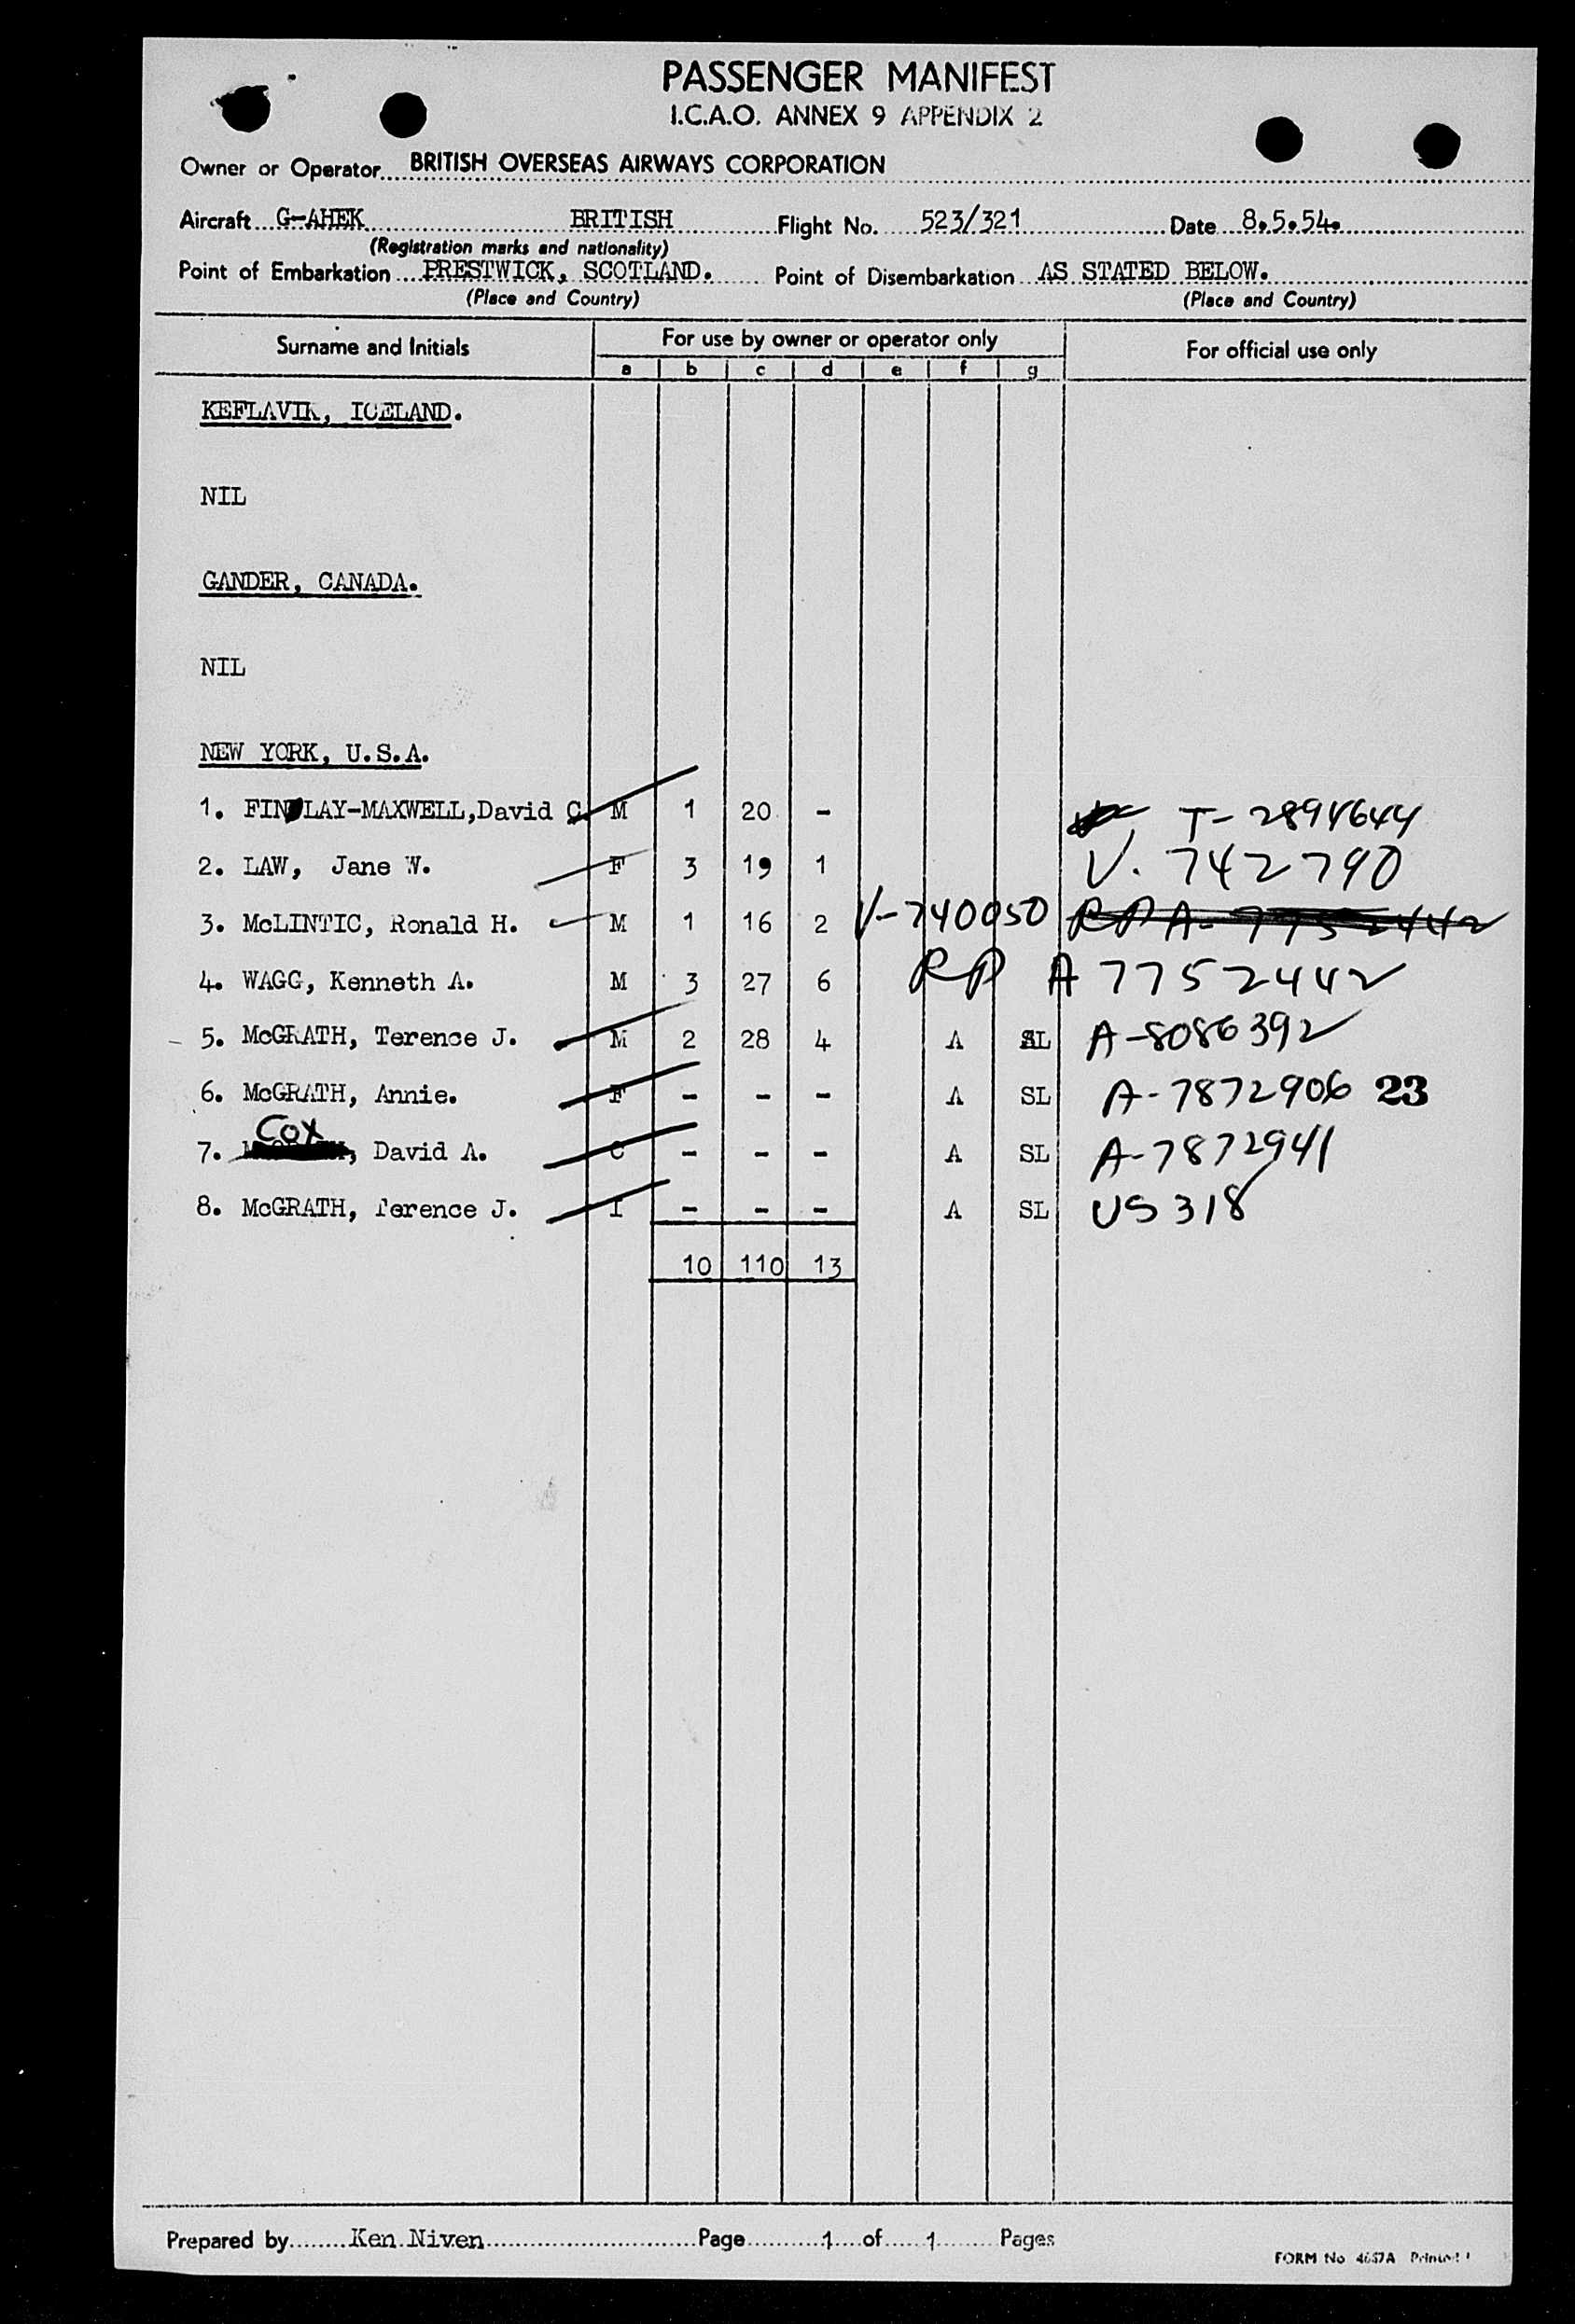 PASSENGER MANIFEST
I.C.A.O. ANNEX 9 APPENDIX 2
Owner or Operator BRITISH OVERSEAS AIRWAYS CORPORATION
Aircraft G-AHEK BRITISH Flight No. 523/321 Date 8.5.54.
(Registration marks and nationality)
Point of Embarkation PRESTWICK, SCOTLAND. Point of Disembarkation AS STATED BELOW.
(Place and Country) (Place and Country)
Surname and Initials For use by owner or operator only For official use only
a b c d e f g
KEFLAVIK, ICELAND.
NIL
GANDER, CANADA.
NIL
NEW YORK, U.S.A.
1. FINDLAY-MAXWELL, David C. M 1 20 - T-2894644
2. LAW, Jane W. F 3 19 1 V. 742790
3. McLINTIC, Ronald H. M 1 16 2 V-740050 RP A-7752442
4. WAGG, Kenneth A. M 3 27 6 RP A 7752442
5. McGRATH, Terence J. M 2 28 4 A SL A-8086392
6. McGRATH, Annie. F - - - A SL A-7872906 23
7. COX, David A. C - - - A SL A-7872941
8. McGRATH, Terence J. I - - - A SL US318
10 110 13
Prepared by Ken Niven Page 1 of 1 Pages
FORM No 4657A